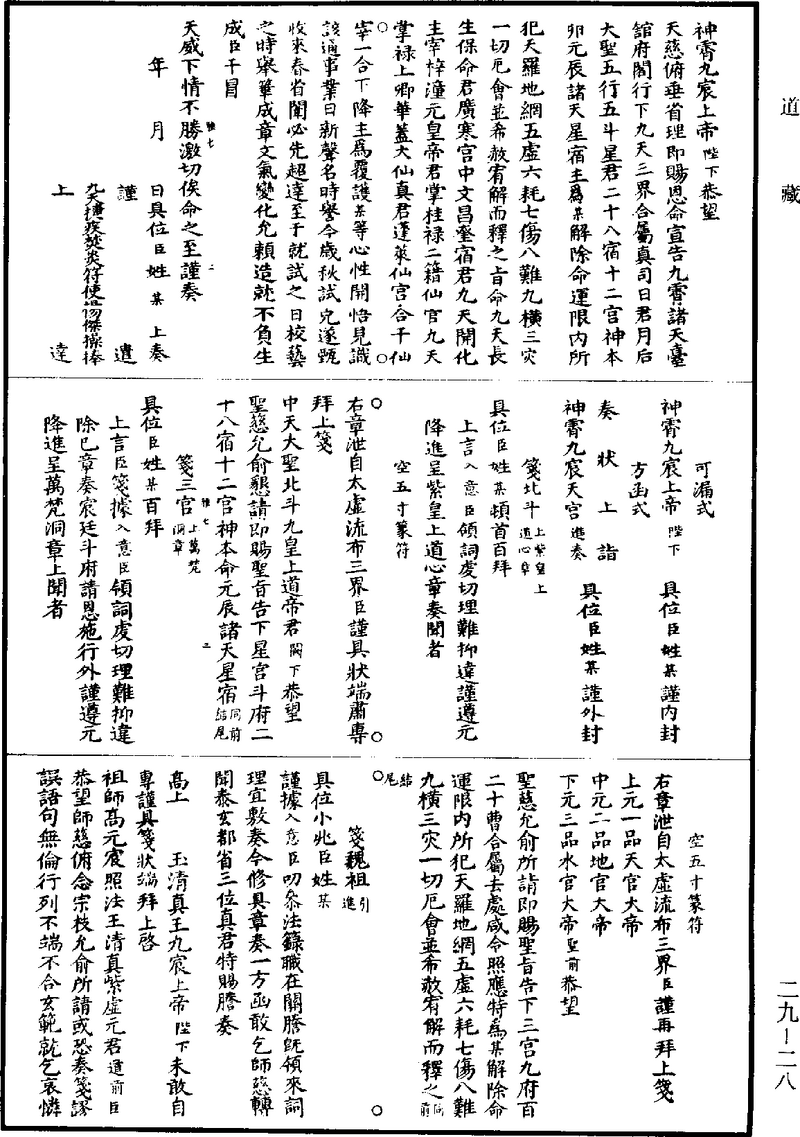 道藏
神霄九宸上帝陛下恭望
天慈俯垂省理即賜恩命宣告九霄諸天臺
館府閣行下九天三界合屬真司日君月后
大聖五行五斗星君二十八宿十二宮神本
命元辰諸天星宿主為某解除命運限內所
犯天羅地網五虛六耗七傷八難九橫三灾
一切厄會並希赦宥解而釋之旨命九天長
生保命君廣寒宮中文昌壑宿君九天開化
主宰梓潼元皇帝君掌桂祿二籍仙官九天
掌祿上卿華蓋大仙真君蓬萊仙宮合千仙
宰一合下降主為覆護某等心性開悟見識
該通事業日新聲名時譽今歲秋試允遂甄
收來春省闈必先超達至于就試之日校藝
之時舉筆成章文氣變化允賴造就不負生
成臣干冒
天威下情不勝激切俟命之至謹奏
雅七 一
年 月 日具位臣姓某上奏
謹遣
九天捷疾焚炎符使湯傑操捧
上達
可漏式
神霄九宸上帝陛下 具位臣姓某謹內封
方函式
奏狀上詣
神霄九宸天宮進奏 具位臣姓某謹外封
箋北斗上紫皇上道心章
具位臣姓某頓首百拜
上言入意臣領詞虔切理難抑違謹遵元
降進呈紫皇上道心章奏聞者
空五寸篆符
右章泄自太虛流布三界臣謹具狀端肅專
拜上箋
中天大聖北斗九皇上道帝君闕下恭望
聖慈允俞懇請即賜聖旨告下星宮斗府二
十八宿十二宮神本命元辰諸天星宿同前結尾
雅七 二
箋三官上萬梵洞章
具位臣姓某百拜
上言臣箋據入意臣領詞虔切理難抑違
除已章奏宸廷斗府請恩施行外謹遵元
降進呈萬梵洞章上聞者
空五寸篆符
右章泄自太虛流布三界臣謹再拜上箋
上元一品天官大帝
中元二品地官大帝
下元三品水官大帝聖前恭望
聖慈允俞所請即賜聖旨告下三宮九府百
二十曹合屬去處咸令照應特為某解除命
運限內所犯天羅地網五虛六耗七傷八難
九橫三灾一切厄會並希赦宥解而釋之同前
結尾
箋魏祖引進
具位小兆臣姓某
謹據入意臣叨忝法籙職在關謄旣領來詞
理宜敷奏今修具章奏一方函敢乞師慈轉
聞泰玄都省三位真君特賜謄奏
高上 玉清真王九宸上帝陛下未敢自
專謹具箋狀端拜上啓
祖師高元宸照法王清真紫虛元君道前臣
恭望師慈俯念宗枝允俞所請或恐奏箋謬
誤語句無倫行列不端不合玄範就乞哀憐
二九—二八